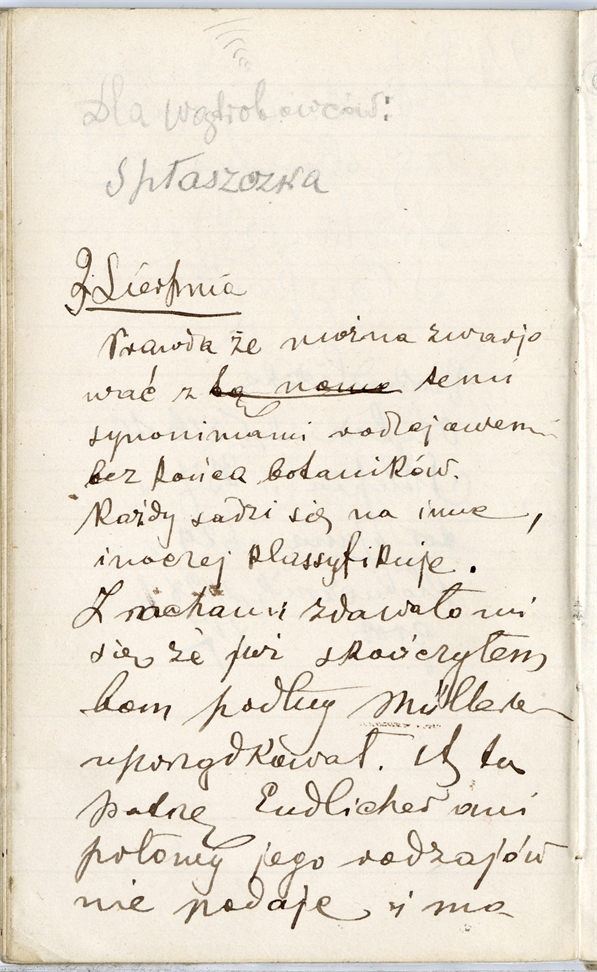 Dla wątrobowców:
Spłaszczka
2 Sierpnia
Prawda że można zwarjo
wać z temi
synonimami rodzajowemi
bez końca botaników.
Każdy sadzi się na inne,
inaczej klassyfikuje.
Z zdawało mi
się że już skończyłem
bom podług Müllera
uporządkował. A tu
patrzę Endlicher ani
połowy jego rodzajów
nie podaje i ma